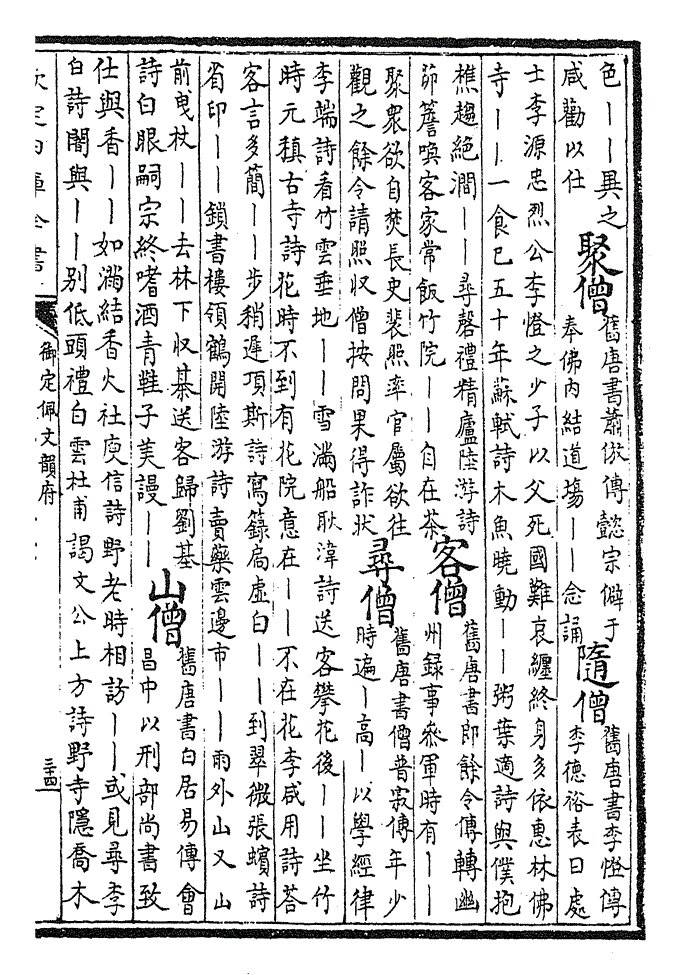 色｜｜異之
咸勸以仕
聚僧
舊唐書蕭倣傳懿宗僻于
奉佛内結道場｜｜念誦
隨僧
舊唐書李憕傳
李德裕表曰處
士李源忠烈公李憕之少子以父死國難哀纏終身多依惠林佛
寺｜｜一食已五十年蘇軾詩木魚曉動｜｜粥葉適詩與僕抱
樵趨絶澗｜｜尋磬禮精廬陸游詩
茆簷喚客家常飯竹院｜｜自在茶
客僧
舊唐書郎餘令傳轉幽
州録事叅軍時有｜｜
聚衆欲自焚長史裴照率官屬欲往
觀之餘令請照収僧按問果得詐狀
尋僧
舊唐書僧普寂傳年少
時遍｜高｜以學經律
李端詩看竹雲垂地｜｜雪滿船耿湋詩送客攀花後｜｜坐竹
時元稹古寺詩花時不到有花院意在｜｜不在花李咸用詩荅
客言多簡｜｜步稍遲項斯詩寫籙扃虚白｜｜到翠微張蠙詩
省印｜｜鎖書樓領鶴開陸游詩賣藥雲邊市｜｜雨外山又 山
前曳杖｜｜去林下収棊送客歸劉基
詩白眼嗣宗終嗜酒青鞋子美謾｜｜
山僧
舊唐書白居易傳會
昌中以刑部尚書致
仕與香｜｜如滿結香火社庾信詩野老時相訪｜｜或見尋李
白詩闇與｜｜别低頭禮白雲杜甫謁文公上方詩野寺隱喬木
欽定四庫全書
御定佩文韻府
三四